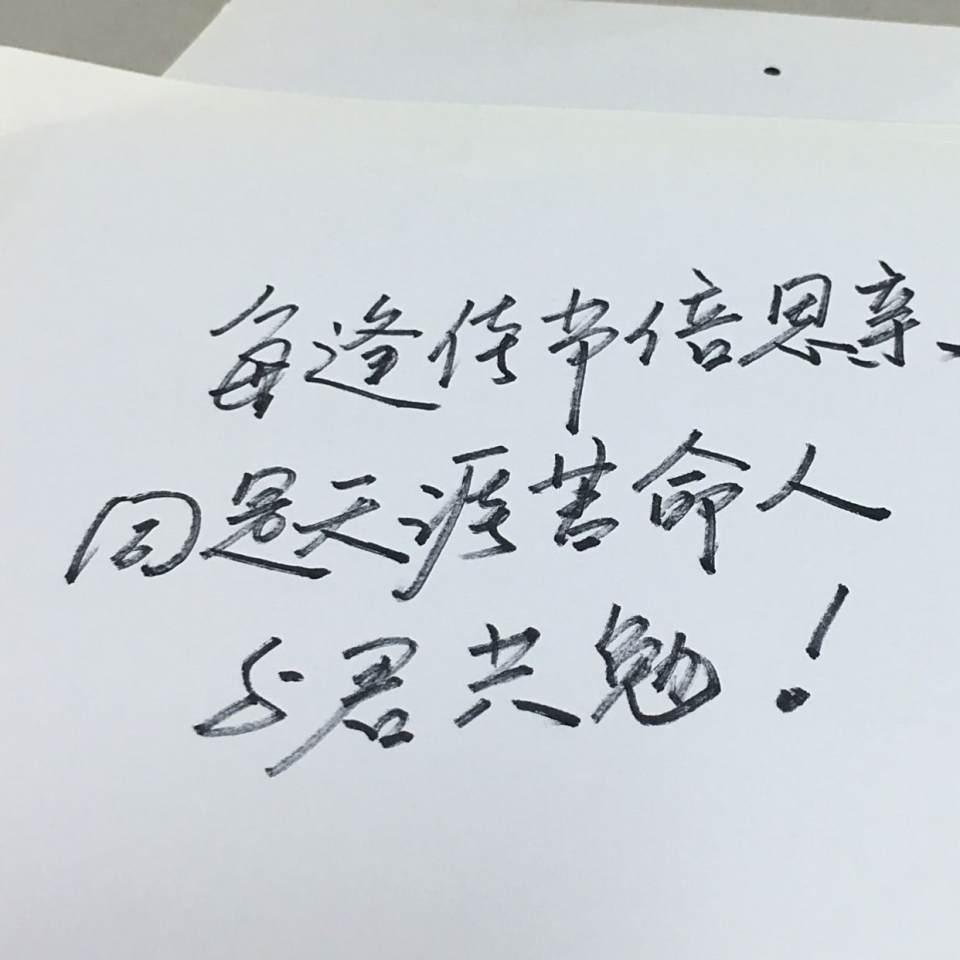 每逢佳节倍思亲
同是天涯苦命人
与君共勉！